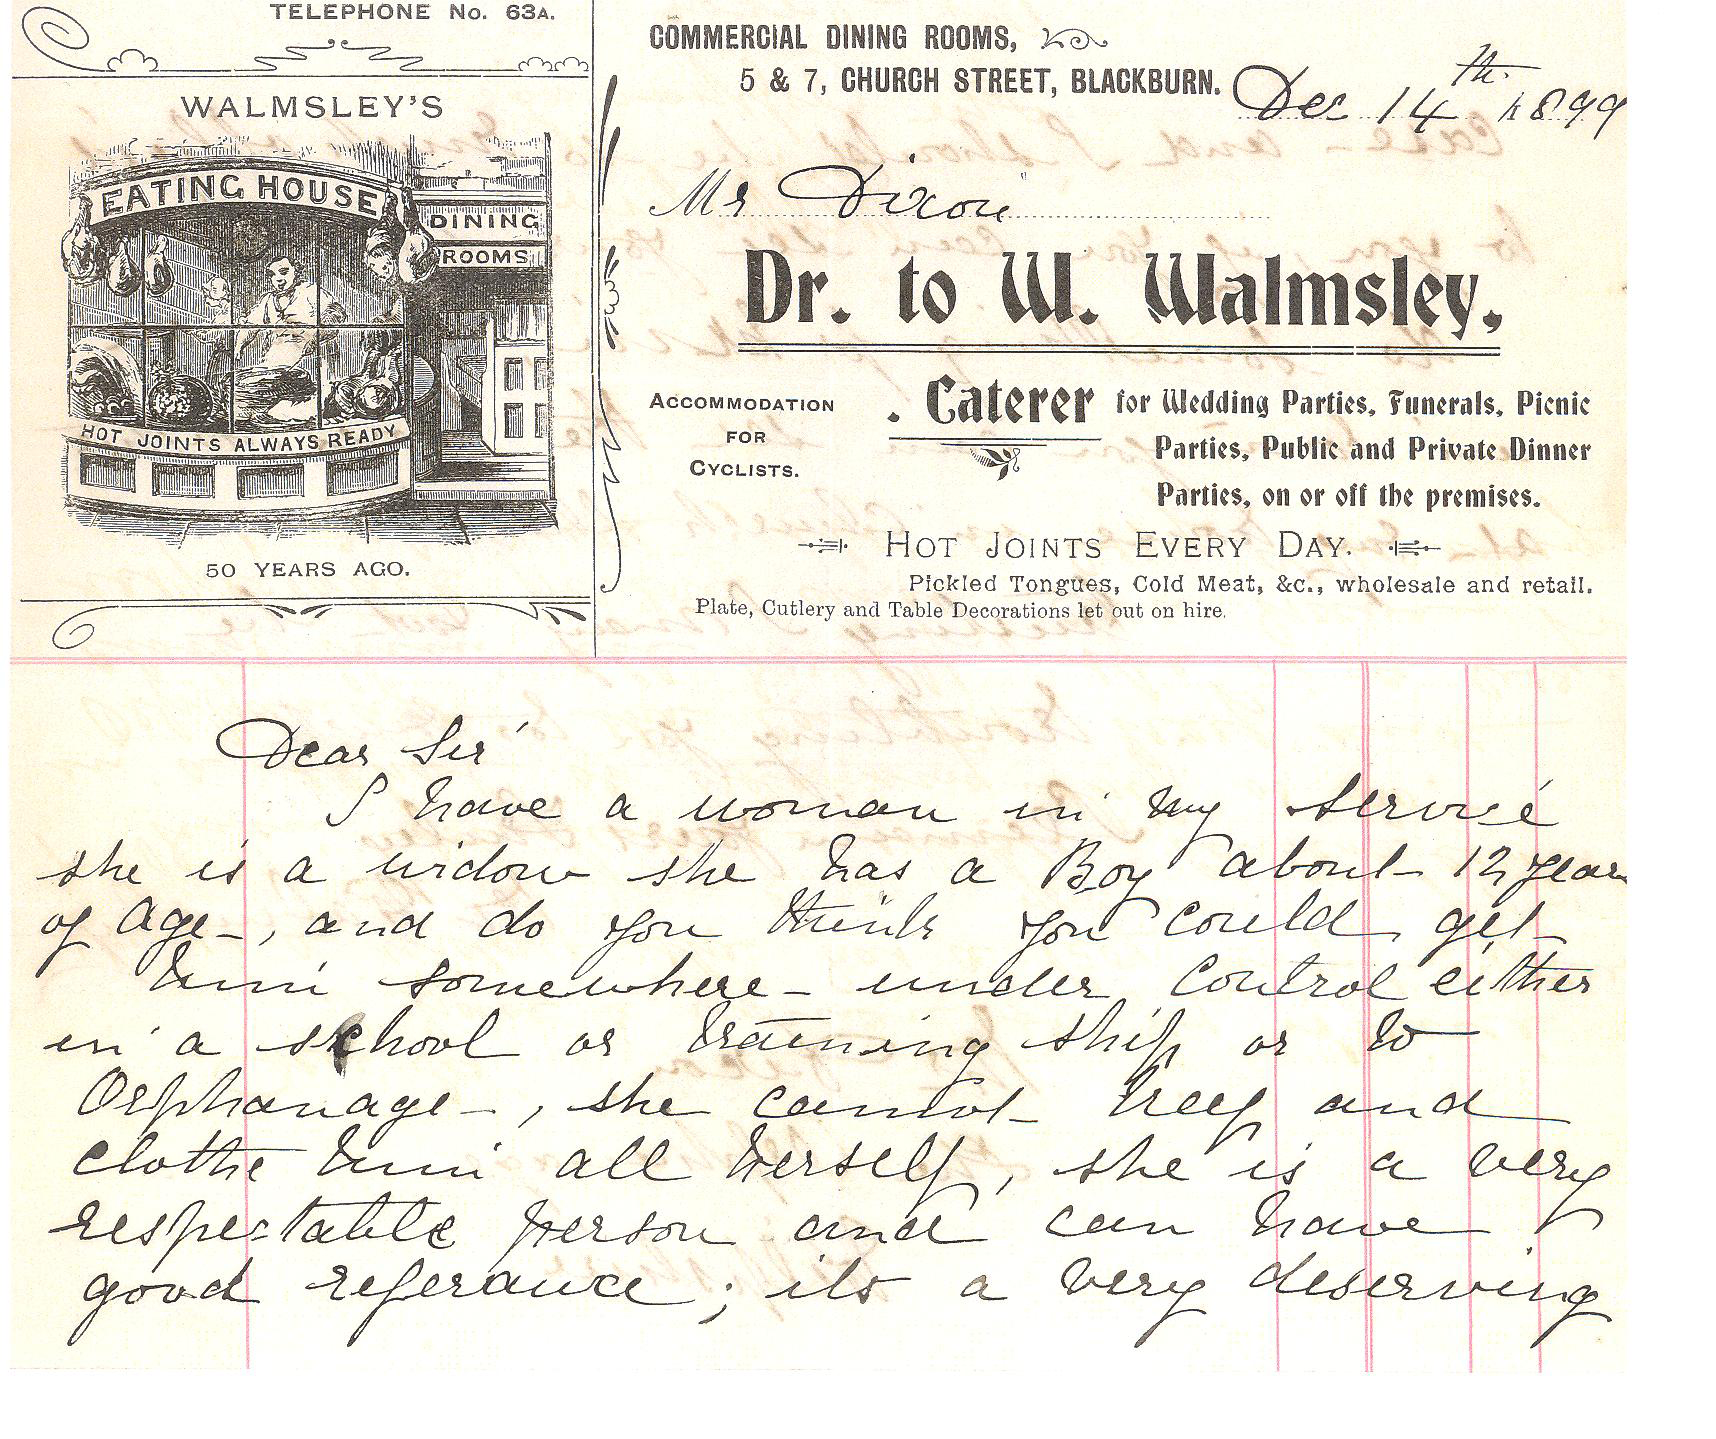 TELEPHONE No. 63A.
WALMSLEY'S
EATING HOUSE
DINING
ROOMS
HOT JOINTS ALWAYS READY
50 YEARS AGO.
COMMERCIAL DINING ROOMS,
5 & 7, CHURCH STREET, BLACKBURN.
Dec 14th 1899
Mr Dixon
Dr. to W. Walmsley,
ACCOMMODATION
FOR
CYCLISTS.
. Caterer for Wedding Parties, Funerals, Picnic
Parties, Public and Private Dinner
Parties, on or off the premises.
HOT JOINTS EVERY DAY.
Pickled Tongues, Cold Meat, &c., wholesale and retail.
Plate, Cutlery and Table Decorations let out on hire.
Dear Sir
I have a woman in my service
she is a widow she has a Boy about 12 years
of age, and do you think you could get
him somewhere under control either
in a school or training ship or to
Orphanage, she cannot keep and
clothe him all herself, she is a very
respectable person and can have
good referance; its a very deserving